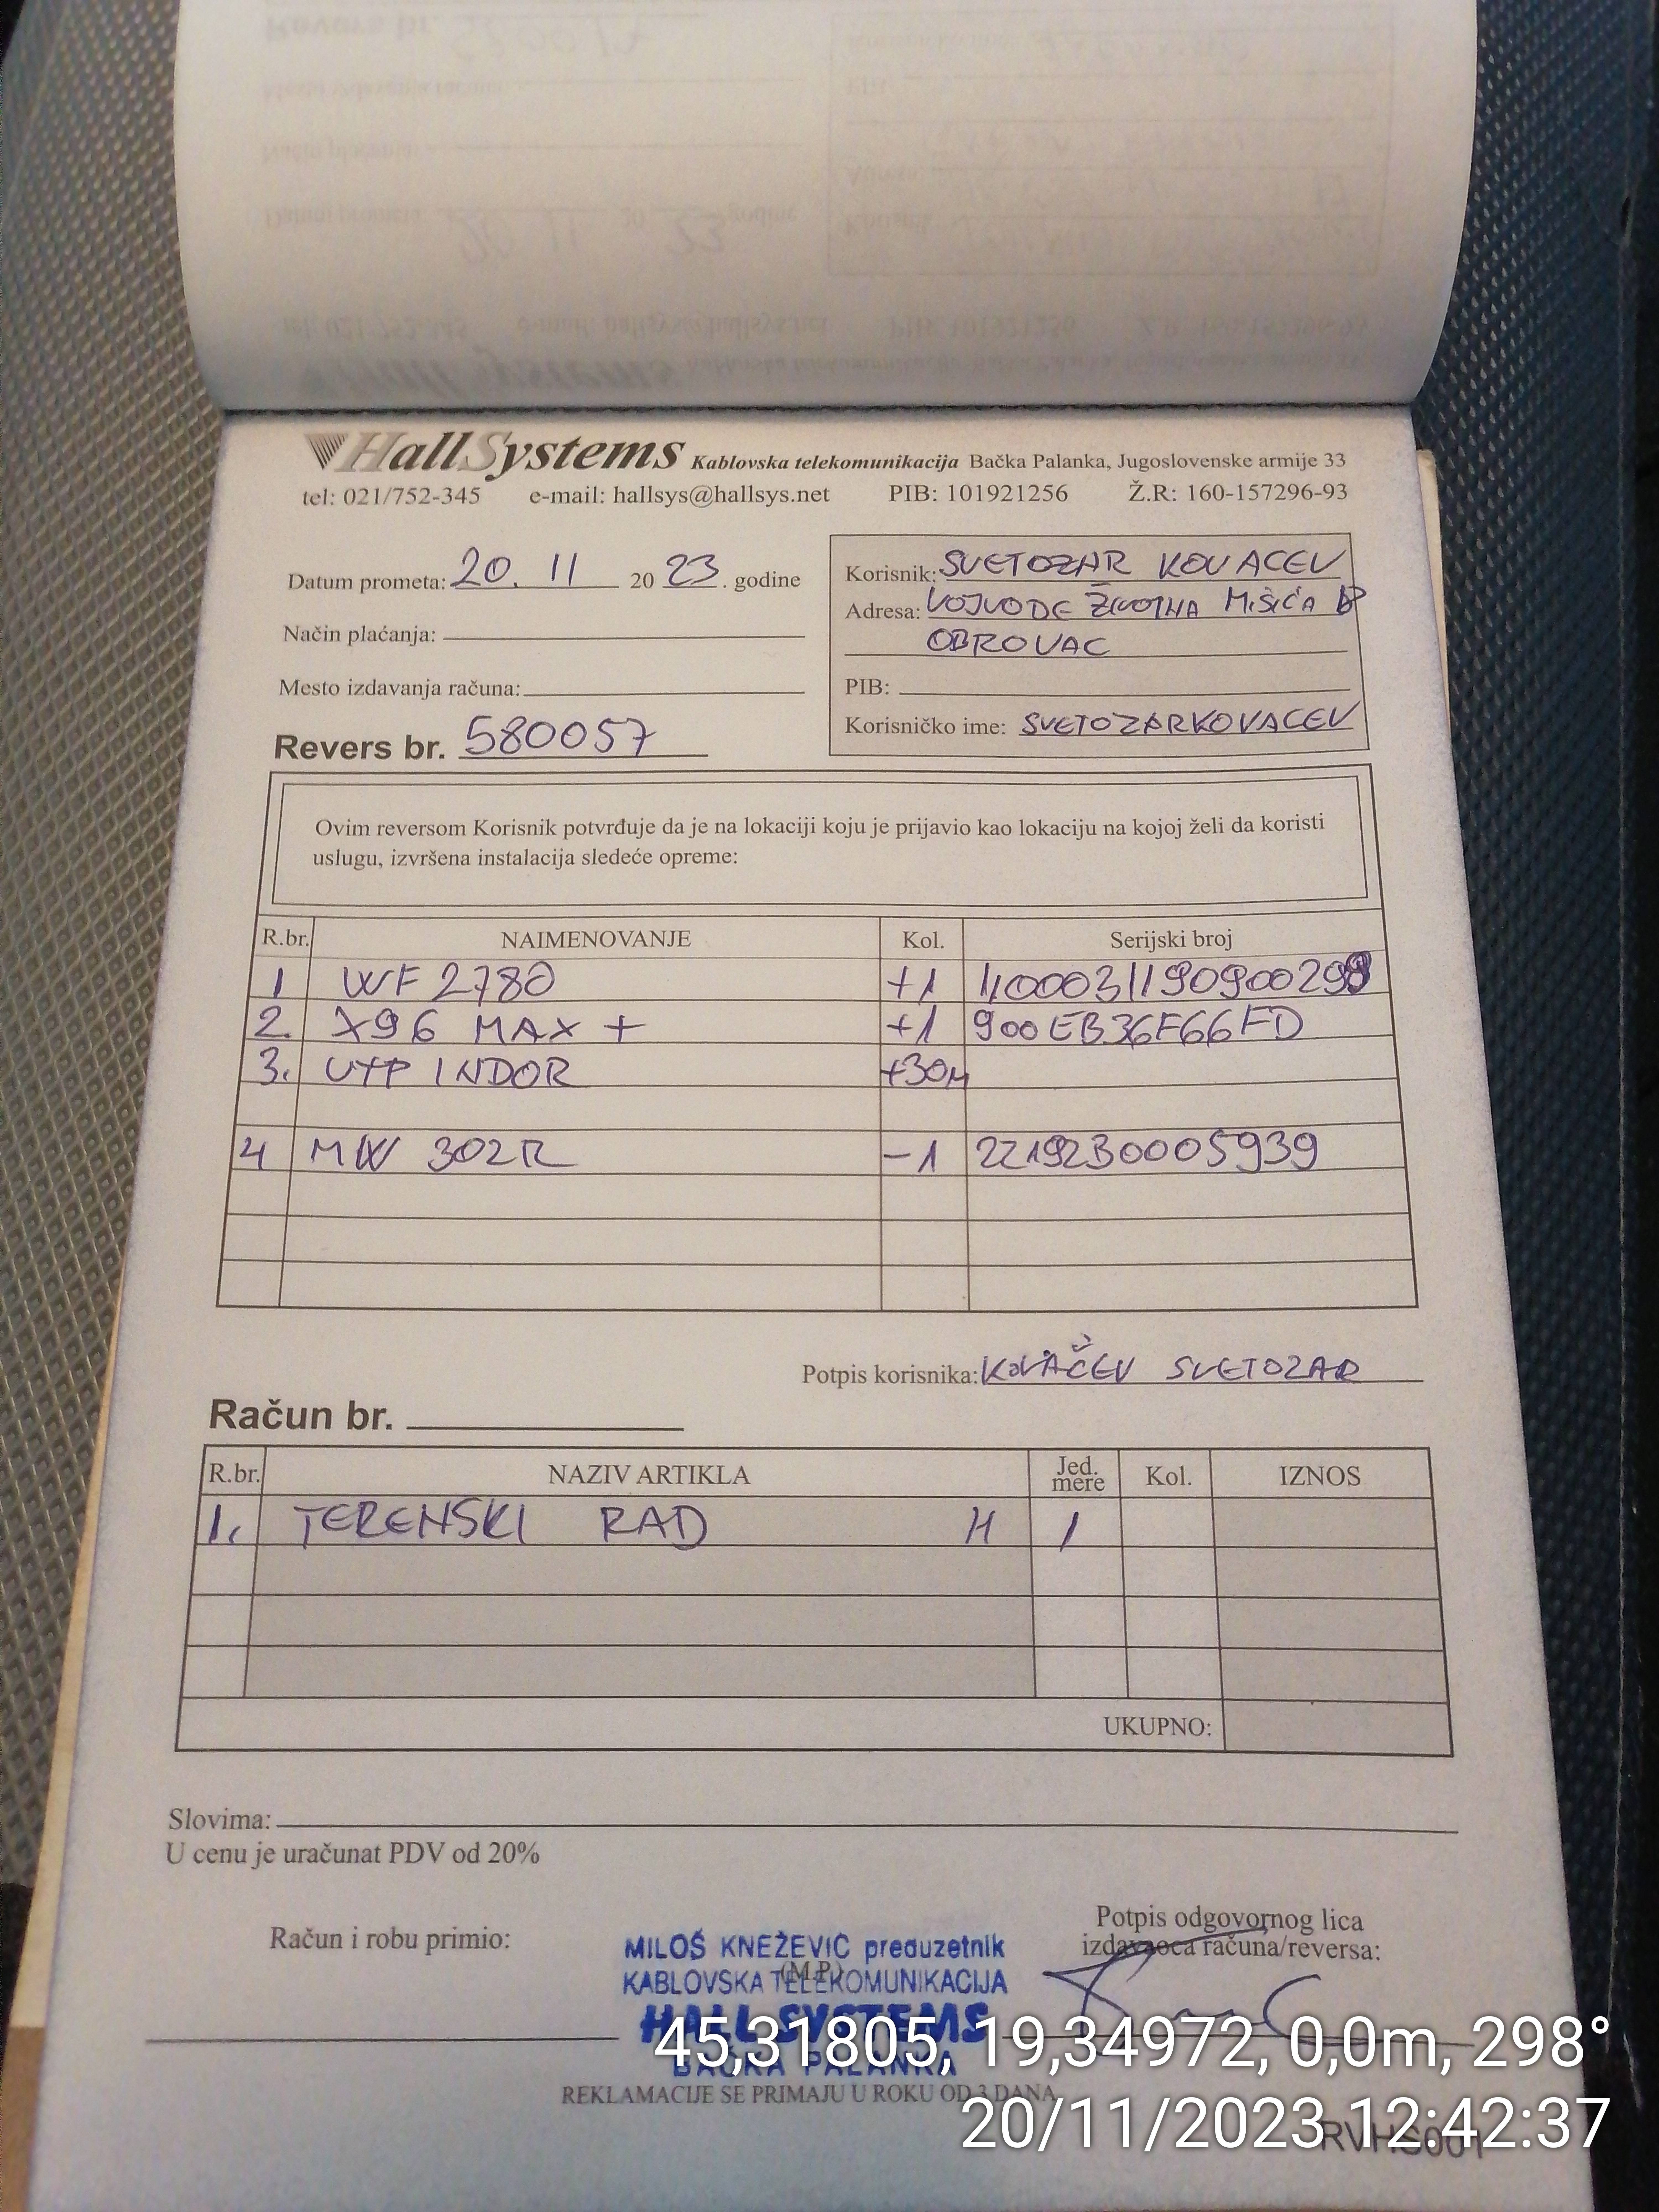 HallSystems Kablovska telekomunikacija Bačka Palanka, Jugoslovenske armije 33
tel: 021/752-345 e-mail: hallsys@hallsys.net PIB: 101921256 Ž.R: 160-157296-93
Datum prometa: 20. 11 20 23. godine
Način plaćanja:
Mesto izdavanja računa:
Revers br. 580057
Korisnik: SVETOZAR KOVACEV
Adresa: VOJVODE ŽIVOJINA MIŠIĆA
OBROVAC
PIB:
Korisničko ime: SVETOZARKOVACEV
Ovim reversom Korisnik potvrđuje da je na lokaciji koju je prijavio kao lokaciju na kojoj želi da koristi
uslugu, izvršena instalacija sledeće opreme:
R.br. NAIMENOVANJE Kol. Serijski broj
1 WF 2780 +1
2. X96 MAX + +1 900EB36F66FD
3. UTP INDOR +30M
4 MW 302R -1 2219230005939
Potpis korisnika: KOVAČEV SVETOZAR
Račun br.
R.br. NAZIV ARTIKLA Jed. mere Kol. IZNOS
1. TERENSKI RAD H 1
UKUPNO:
Slovima:
U cenu je uračunat PDV od 20%
Račun i robu primio:
Potpis odgovornog lica
izdavaoca računa/reversa:
(M.P.)
MILOŠ KNEŽEVIĆ preduzetnik
KABLOVSKA TELEKOMUNIKACIJA
HALL SYSTEMS
BAČKA PALANKA
REKLAMACIJE SE PRIMAJU U ROKU OD 3 DANA
RVHS001
45,31805, 19,34972, 0,0m, 298°
20/11/2023 12:42:37